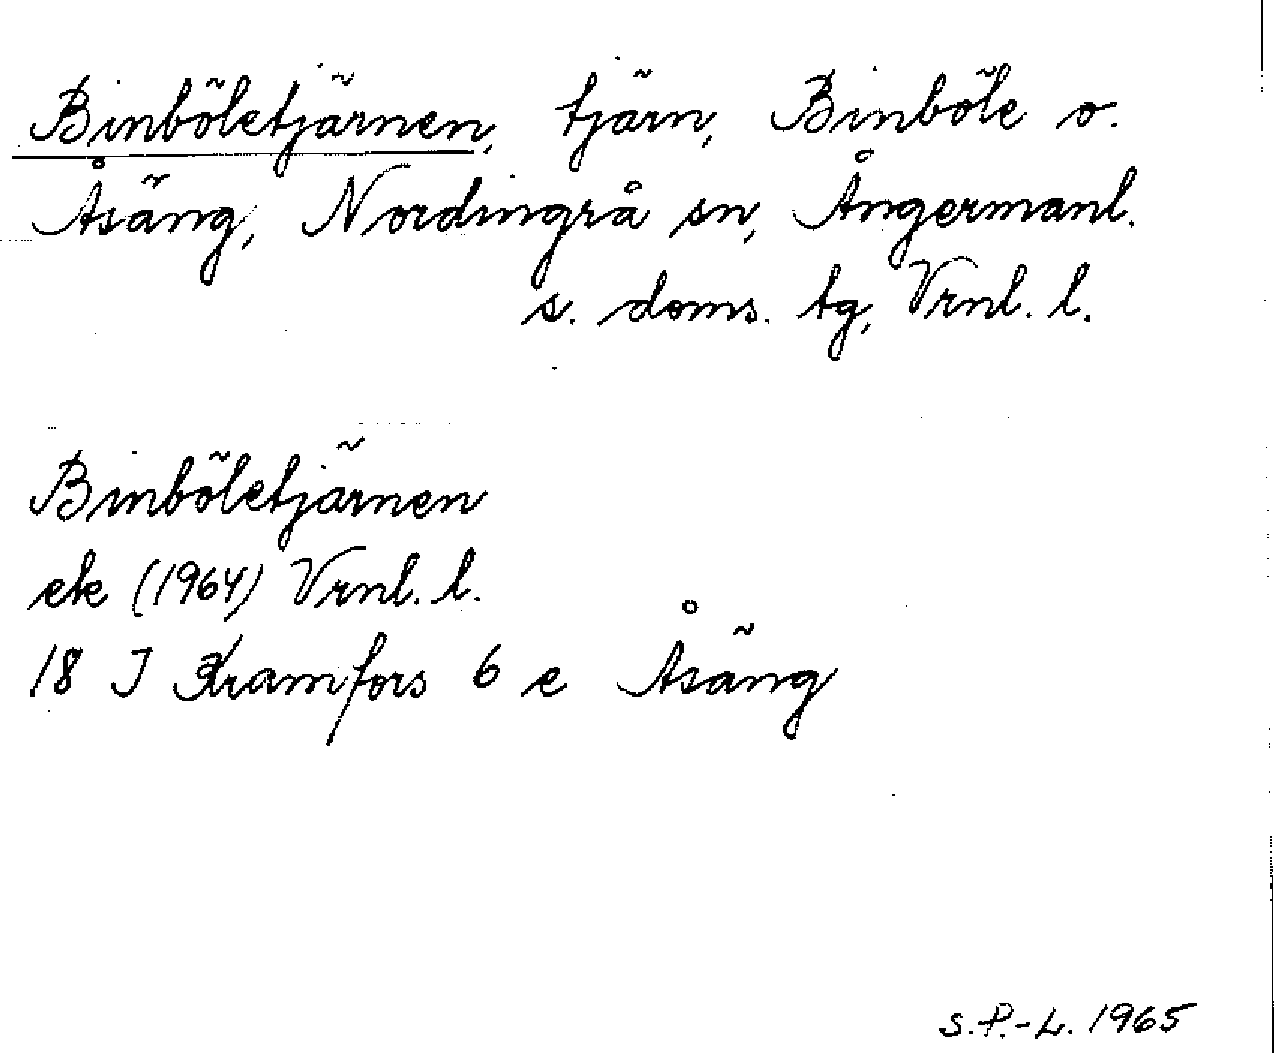 Binböletjärnen, tjärn, Binböle o.
Åsäng, Nordingrå sn, Ångermanl.
s. doms. tg, Vrnl. l.
Binböletjärnen
ek (1964) Vrnl. l.
18 J Kramfors 6 e Åsäng
S.P.-L. 1965